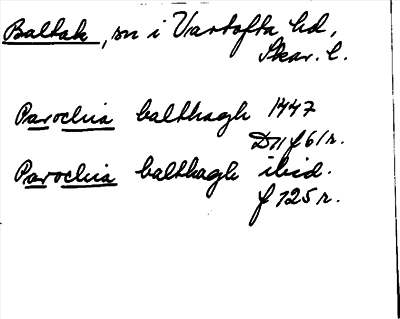 Baltak, sn i Vartofta hd,
Skar. l.
Parochia balthagh 1447
D11 f 61 r.
Parochia balthagh ibid.
f 125 r.